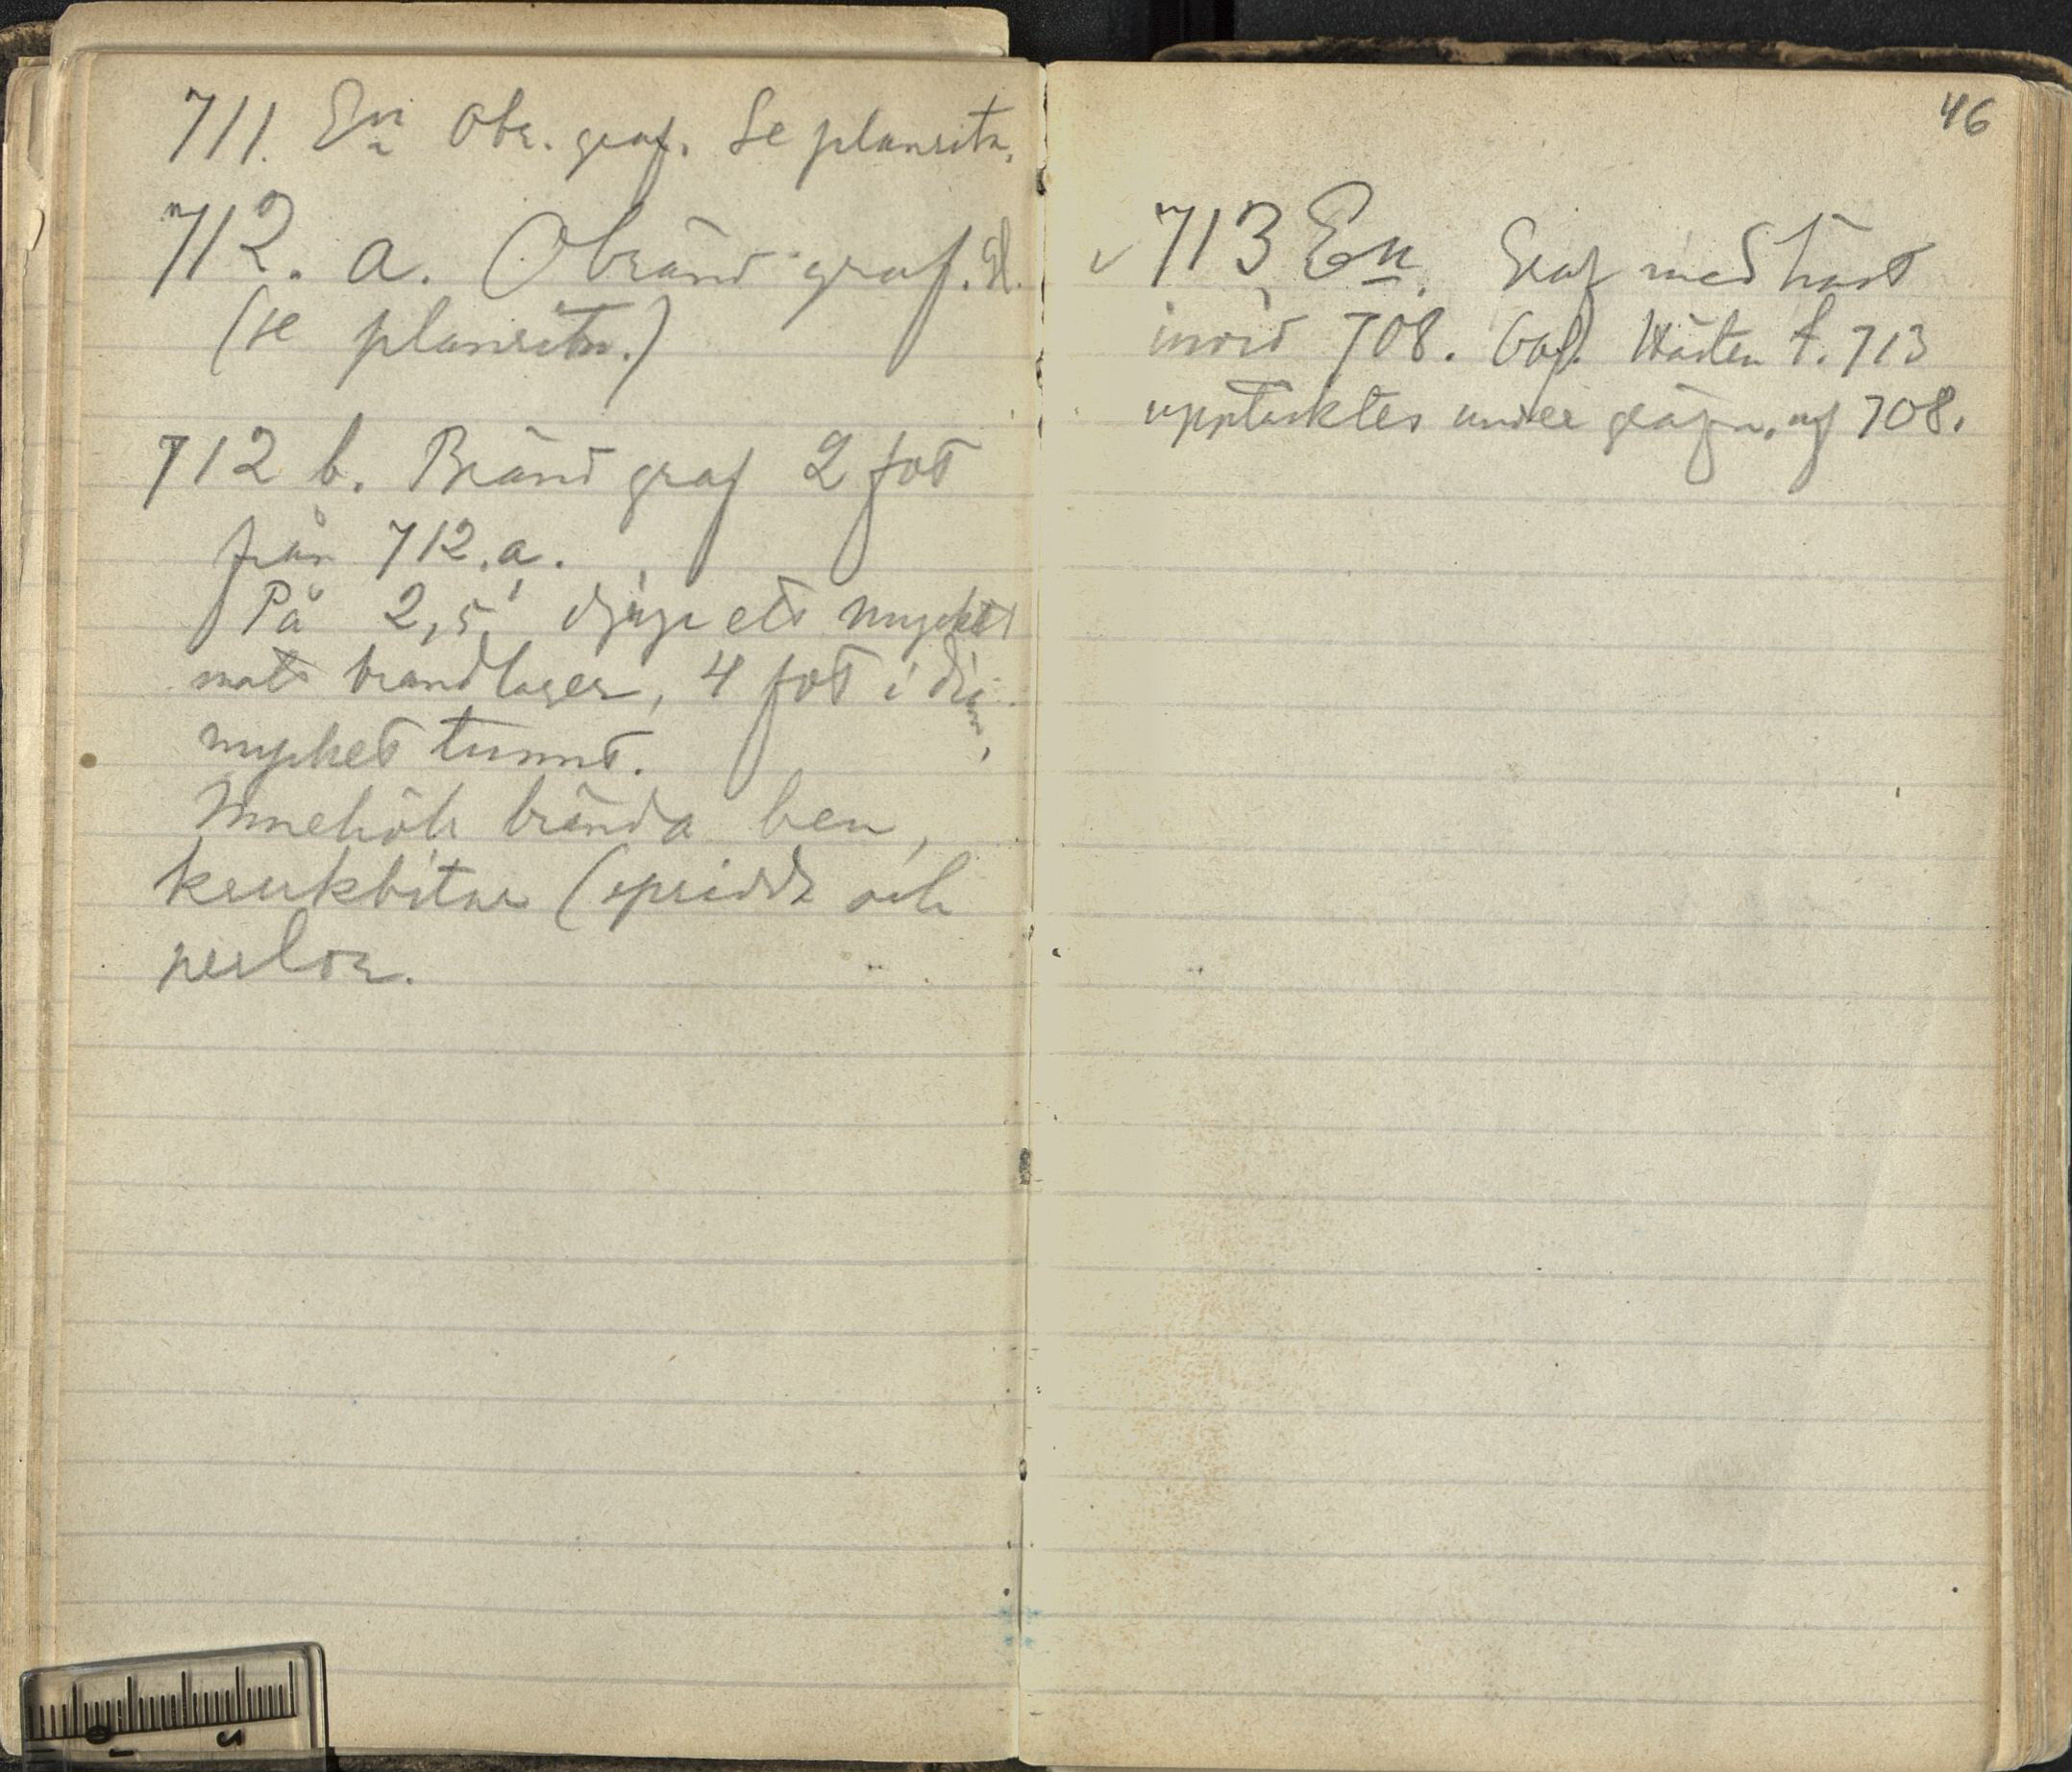 711. En Obr. graf. Se planritn.
712. a. Obränd graf. Sk.
(se planritn.)
712 b. Bränd graf 2 fot
från 712.a.
På 2,5' djup ett mycket
matt brandlager, 4 fot i diam.
mycket tunnt.
Innehöll brända ben,
krukbitar (spridda och
perlor.
46
713 En. Graf med häst
invid 708. Hästen t. 713
upptäcktes under gräfn. af 708.